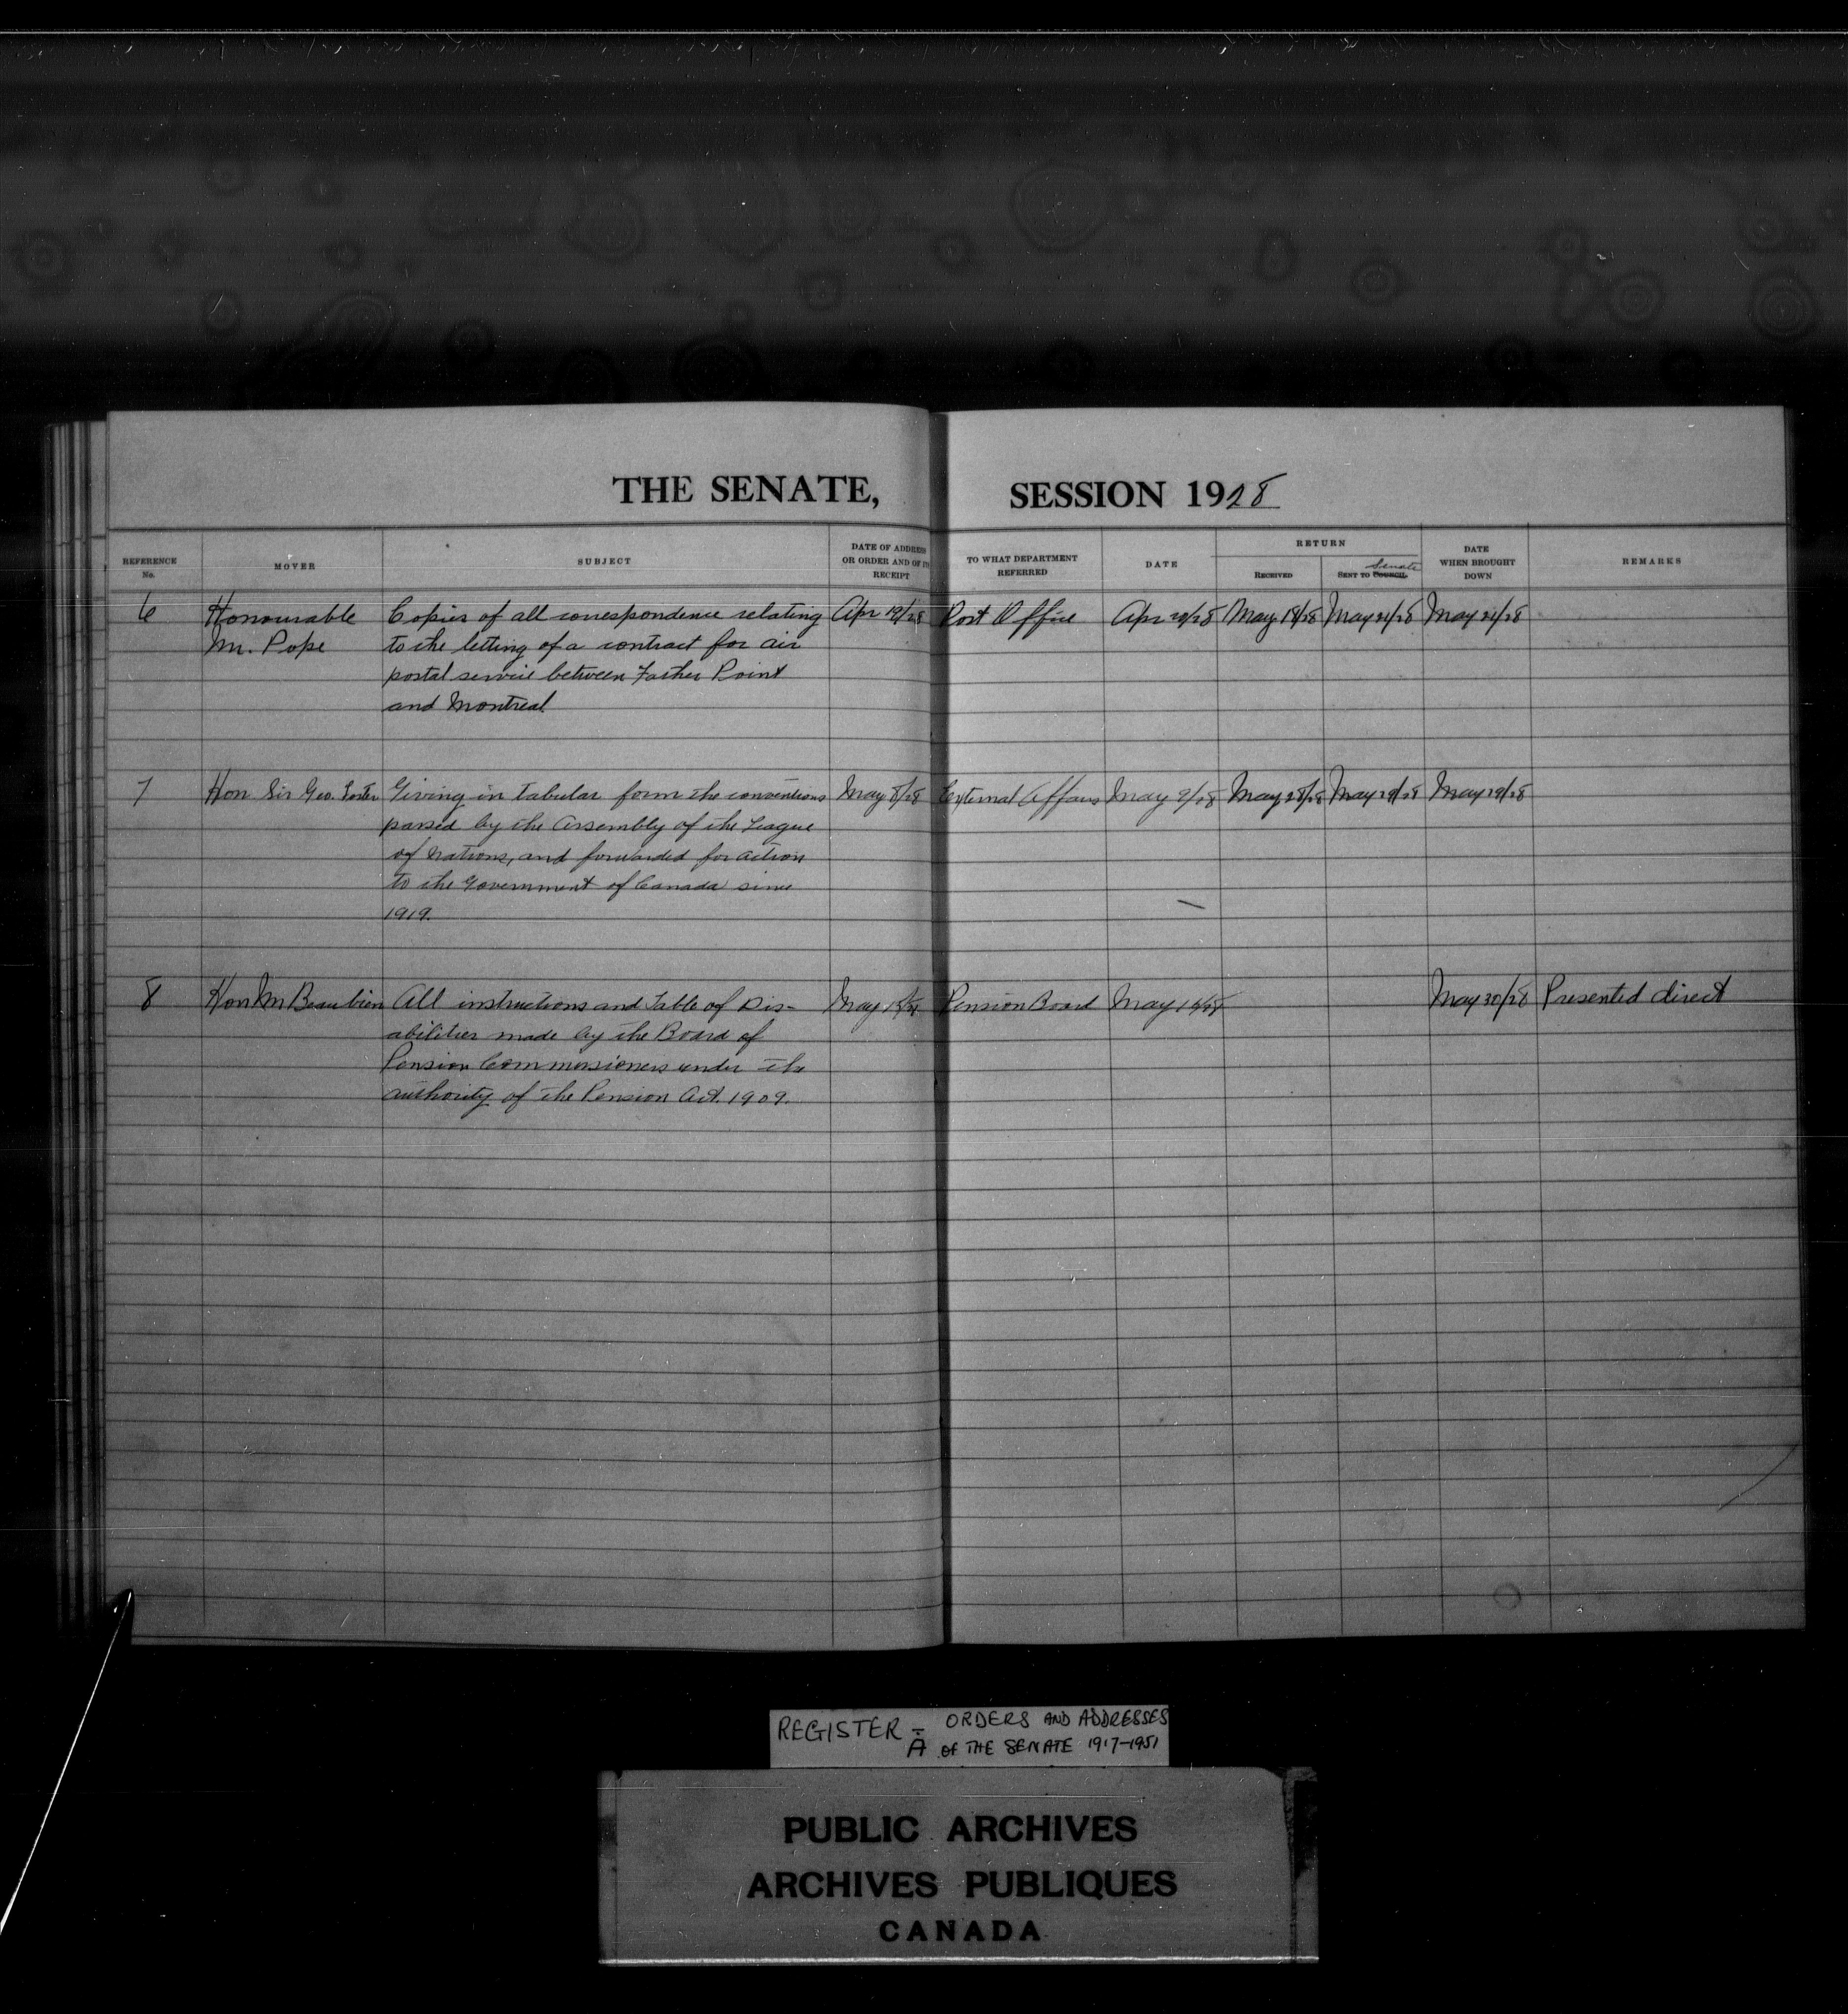 THE SENATE, SESSION 1928
REFERENCE No. MOVER SUBJECT DATE OF ADDRESS OR ORDER AND OF ITS RECEIPT TO WHAT DEPARTMENT REFERRED DATE RETURN RECEIVED SENT TO COUNCIL Senate DATE WHEN BROUGHT DOWN REMARKS
6 Honourable Copies of all correspondence relating Apr 19/28 Post Office Apr 20/28 May 18/28 May 21/28 May 21/28
Mr. Pope to the letting of a contract for air
postal service between Father Point
and Montreal.
7 Hon Sir Geo. Foster Giving in tabular form the conventions May 8/28 External Affairs May 9/28 May 28/28 May 29/28 May 29/28
passed by the Assembly of the League
of Nations, and forwarded for action
to the Government of Canada since
1919.
8 Hon Mr Beaubien All instructions and Table of Dis- May Pension Board May May 30/28 Presented direct
abilities made by the Board of
Pension Commissioners under the
authority of the Pension Act. 1909.
REGISTER - ORDERS AND ADDRESSES
A OF THE SENATE 1917-1951
PUBLIC ARCHIVES
ARCHIVES PUBLIQUES
CANADA